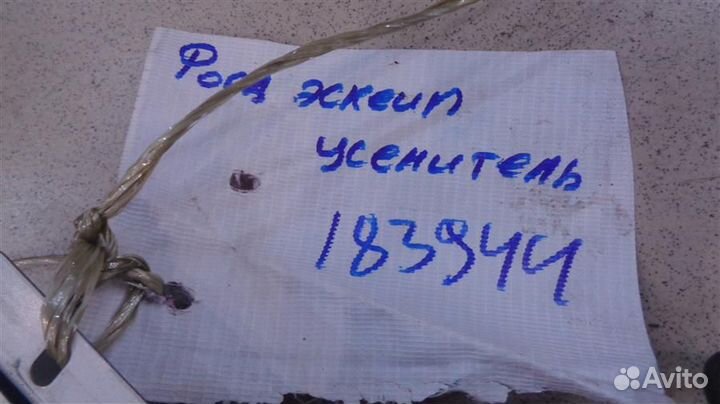 Форд эскеип
усенитель
183944
Avito